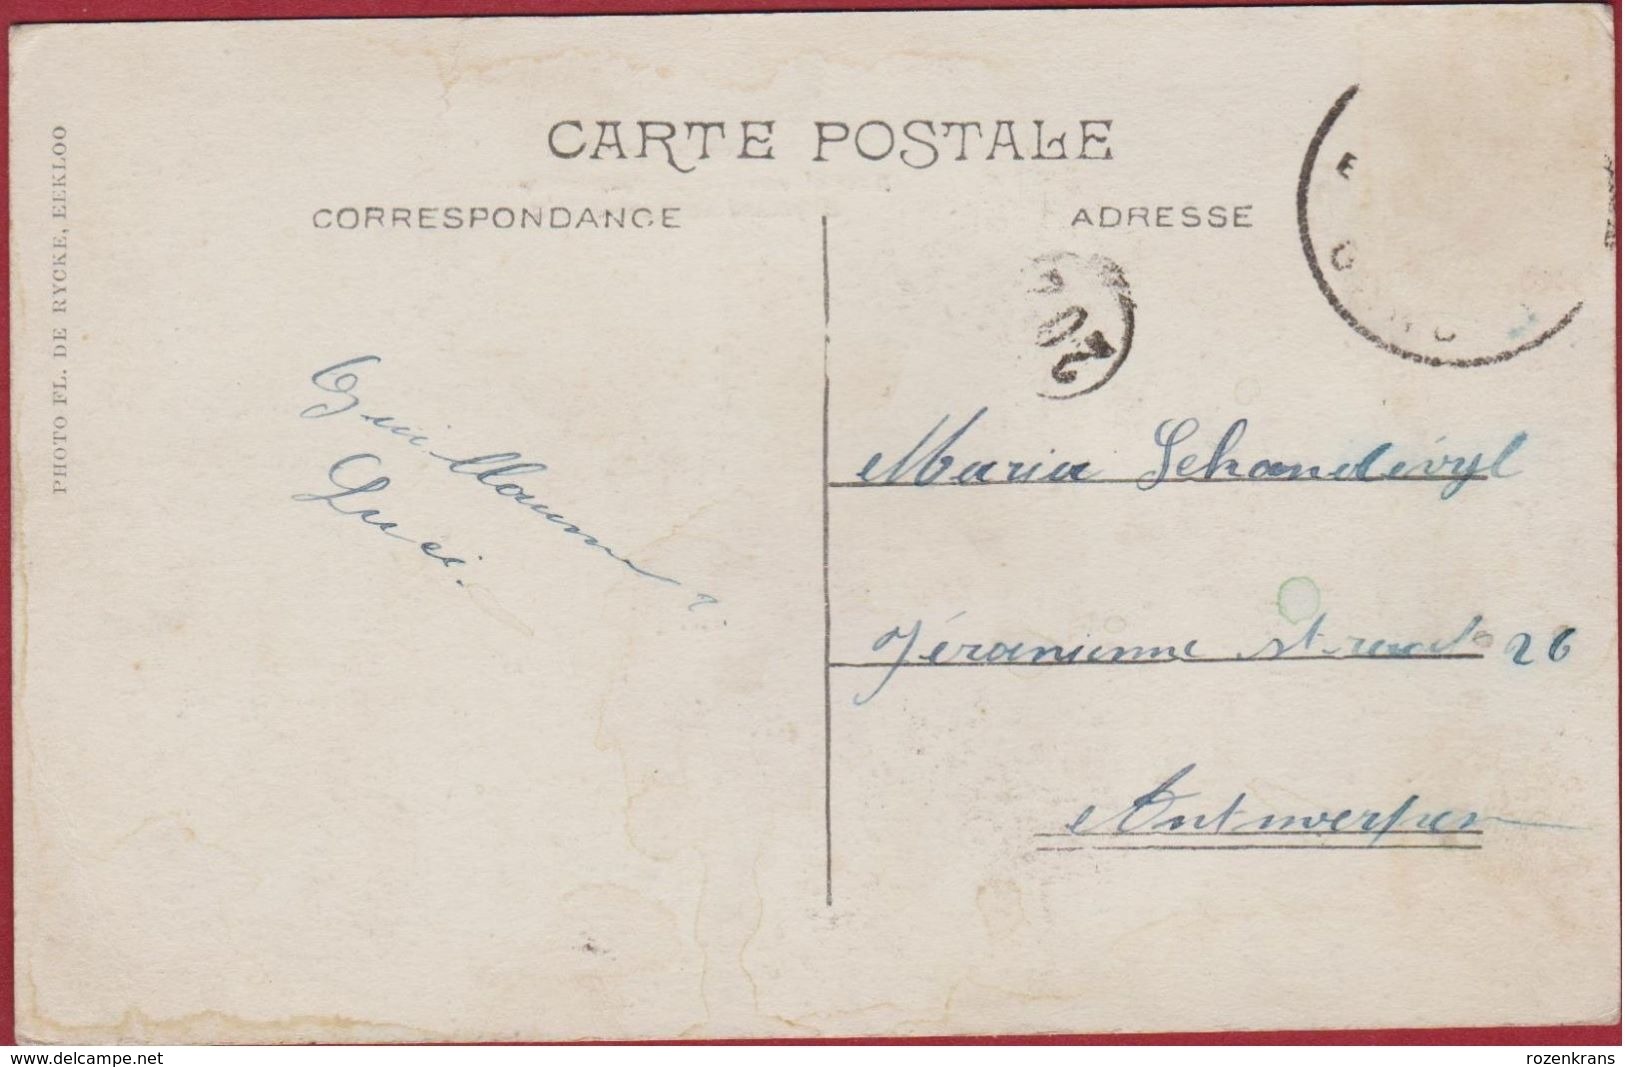 CARTE POSTALE
CORRESPONDANCE
ADRESSE
PHOTO FL. DE RYCKE, EEKLOO
20
Guillaume
Luci.
Maria Schandévyl
Jéranienne straat 26
Antwerpen
www.delcampe.net
rozenkrans